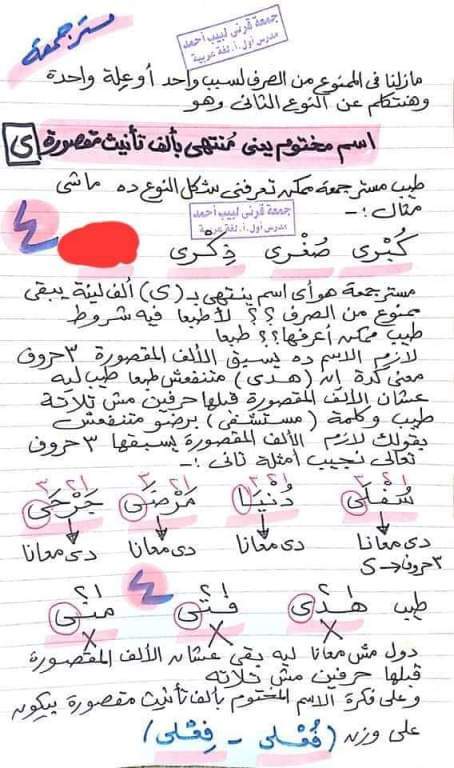 مستر جمعة
جمعة قرني لبيب أحمد
مدرس أول .أ. لغة عربية
مازلنا فى الممنوع من الصرف لسبب واحد أو علة واحدة
وهنتكلم عن النوع الثانى وهو
اسم مختوم يعنى مُنتهى بألف تأنيث مقصورة ى
طيب مستر جمعة ممكن تعرفنى شكل النوع ده ماشى
جمعة قرني لبيب أحمد
مدرس أول .أ. لغة عربية
مثال :-
كُبْرى صُغْرى ذِكْرى
٤
مستر جمعة هو أى اسم ينتهى بـ (ى) ألف لينة يبقى
ممنوع من الصرف ؟؟ لأ طبعا فيه شروط
طيب ممكن أعرفها؟؟ طبعا
لازم الاسم ده يسبق الألف المقصورة ٣ حروف
معنى كدة إن (هدى) متنفعش طبعا طيب ليه
عشان الألف المقصورة قبلها حرفين مش تلاتة
طيب وكلمة (مستشفى) برضو متنفعش
بقولك لازم الألف المقصورة يسبقها ٣ حروف
تعالى نجيب أمثلة تانى :-
١ ٢ ٣ ١ ٢ ٣ ١ ٢ ٣ ١ ٢ ٣
سُفْلَى دُنْيَا مَرْضَى جَرْحَى
دى معانا دى معانا دى معانا دى معانا
٣ حروف → ى
٤
١ ٢ ١ ٢ ١ ٢
طيب هدى فتى منى
X X X
دول مش معانا ليه بقى عشان الألف المقصورة
قبلها حرفين مش تلاته
وعلى فكرة الاسم المختوم بألف تأنيث مقصورة بيكون
على وزن (فُعْلى - فِعْلى)